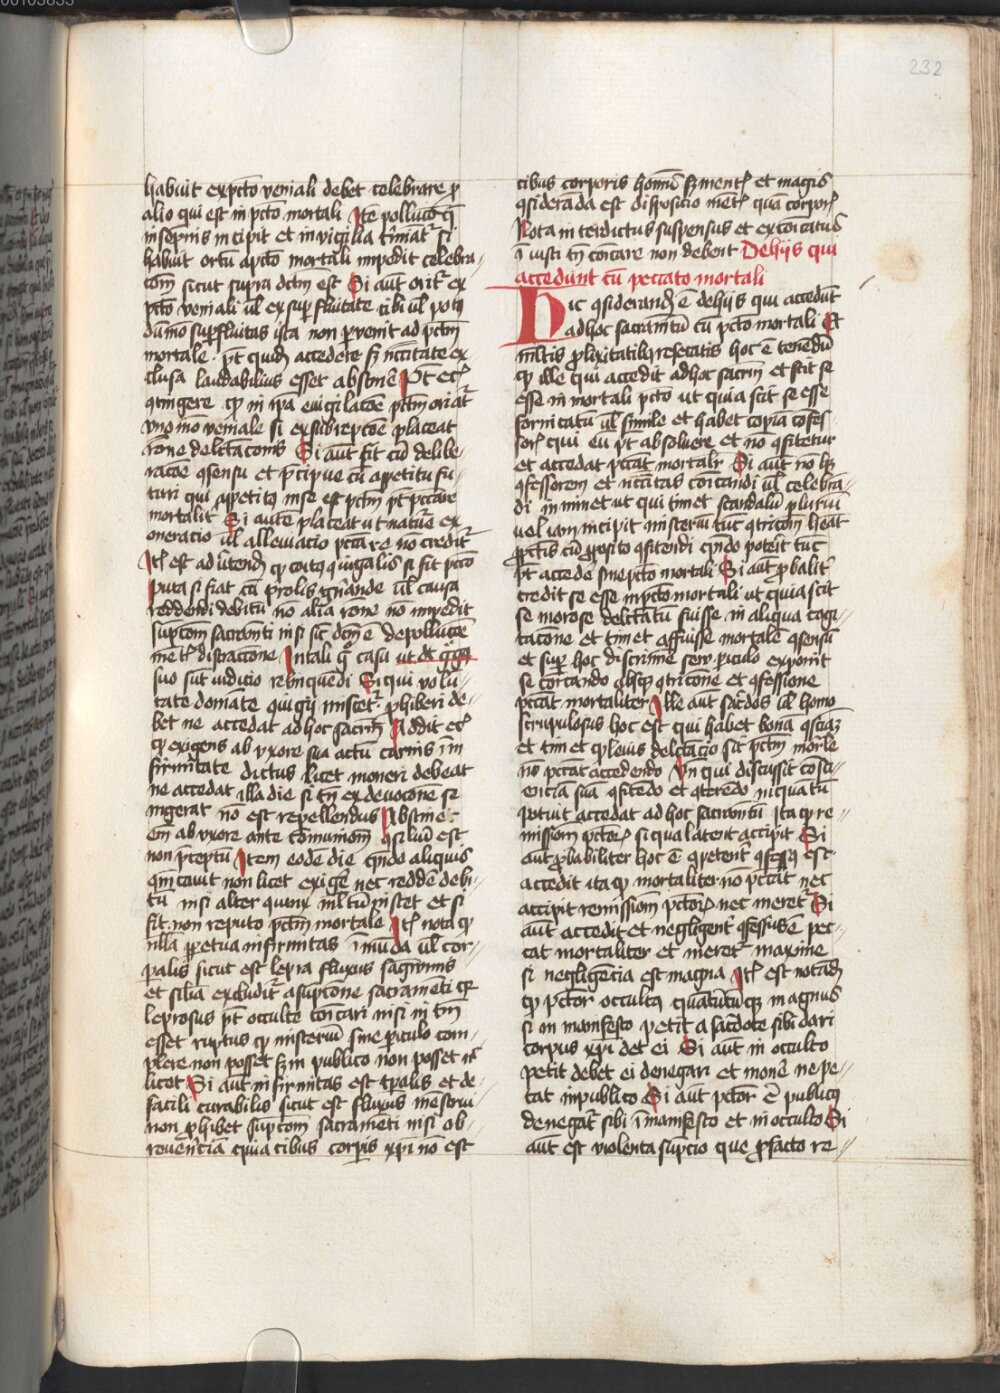 232
habuit ex pcto veniali debet celebrare p
alio qui est in pcto mortali Ite pollucio q
in sopnis incipit et in vigilia tminat si
habuit ortu a pcto mortali impedit celebra-
tom sicut supra dctm est Si aut orit ex
pcto veniali ul ex supfluitate cibi ul pot9
dumo supfluitas ista non pvenit ad pctm
mortale pt quid accedere si nccitate ex
clusa laudabilius esset abstine Pt ec
gtingere qp in ipa evigilacoe pctm oriat
vno mo veniale si ex subrepcoe placeat
rone delctaconis Si aut fit cu delibe-
racoe gsensu et pcipue cu appetitu fu-
turi qui appetit9 in se est pctm pt peccare
mortalit Si aute placeat ut nature ex
oneracio ul alleuiacio pctare no credit
Itē est aduertend qp coit9 coniugalis si sit pcto
puta si fiat ca prolis gnande ul causa
reddendi debitu no alia rone no impedit
supcom sacramti nisi sic dcm e de pollucoe
met distraccone In tali g casu
suo sut iudicio relinquedi Si qui volu-
tate domate quigij miscet phiberi de-
bet ne accedat ad hoc sacrm Addit ec
qp exigens ab vxore sua actu carnis i in
firmitate dictus licet moneri debeat
ne accedat illa die si tn ex deuocone se
ingerat no est repellendus Abstine-
em ab vxore ante comuniom gsiliu est
non pceptu Item eode die qndo aliquis
coicauit non licet exige nec redde debi-
tu nisi alter quenx mltu instet et si
fit non reputo pctm mortale Itē nota qp
nulla ppetua infirmitas i munda ul cor-
palis sicut est lepra fluxus sagwinis
et silia excludit a supcone sacrameti qr
leprosus pt occulte coicari nisi in tm
esset ruptus qp misteriu sine piculo com-
plere non posset sz in publico non posset nc
licet Si aut infirmitas est tpalis et de-
facili curabilis sicut est fluxus menstru
non phibet supcom sacrameti nisi ob-
reuenciam quia cibus corpis xpi no est
cibus corporis homis sz ment et magis
gsiderada est disposicio met qua corpor
Nota interdictus suspensus et excoicatus
i iusti tn coicare non debent De hijs qui
accedunt cu peccato mortali
Hic gsiderand e de hijs qui accedut
ad hoc sacramtu cu pcto mortali Et
mltis plixitatib9 resecatis hoc e tenedu
qp ille qui accedit ad hoc sacrm et scit se
esse in mortali pcto ut quia scit se esse
fornicatu ul simile et habet copia cofes-
sor qui eu pt absoluere et no gfitetur
et accedat peccat mortalr Si aut no hz
gfessorem et nccitas coicandi ul celebra-
di in minet ut qui timet scandalu pluriu
vel iam incipit misteriu tuc gtricom heat
pctis cu pposito gfitendi qndo poterit tuc
pt accede sine pcto mortali Si aut pbalit
credit se esse in pcto mortali ut quia scit
se morose delctatu fuisse in aliqua cogi-
tacone et timet affuisse mortale gsensu
et sup hoc discrimie seu piculo exponit
se coicando absq gtricone et gfessione
peccat mortaliter Ille aut sacdos ul homo
scrupulosus hoc est qui habet bona gsciaz
et timet qp leuis delctacio sit pctm mortle
no peccat accedendo Vn qui discussit cosci-
encia sua gfitedo et gteredo inquatu
potuit accedat ad hoc sacramtu ita qp re-
missiom pctor si qua latent accipit Si
aut pbabiliter hoc e
accedit ita qp mortaliter no peccat nec
accipit remissiom pctor nec meret Si
aut accedit et negligent gfessus e pec-
cat mortaliter et meret maxime
si negligencia est magna Itē est notad
qp pctor occult9 quatucuqz magnus
si in manifesto petit a sacdote sibi dari
corpus xpi det ei Si aut in occulto
petit debet ei denegari et mone ne pe-
tat in publico Si aut pctor e public9
denegat sibi i manifesto et in occulto Si
aut est violenta suspcio que p facto re-